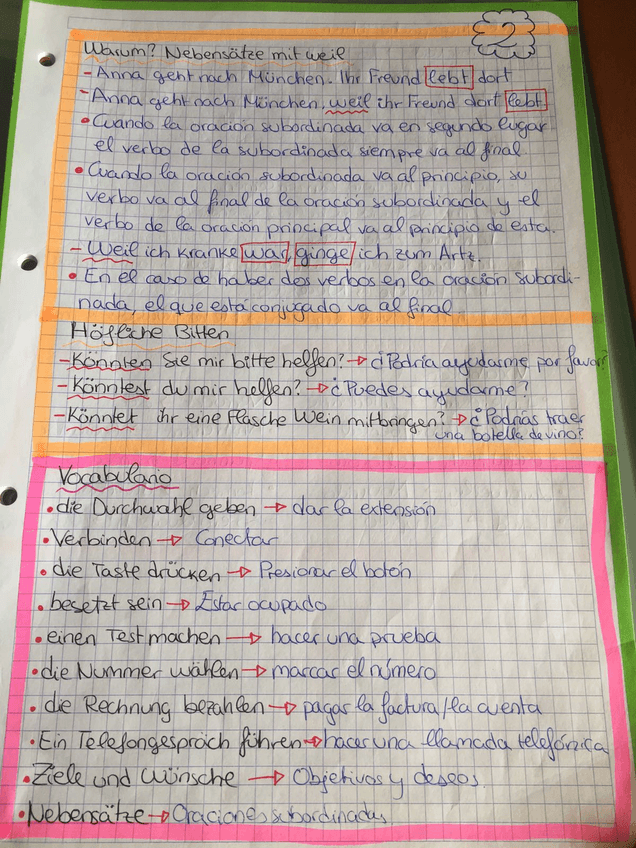 2
Warum? Nebensätze mit weil
- Anna geht nach München. Ihr Freund lebt dort
- Anna geht nach München, weil ihr Freund dort lebt.
• Cuando la oración subordinada va en segundo lugar
el verbo de la subordinada siempre va al final
• Cuando la oración subordinada va al principio, su
verbo va al final de la oración subordinada y el
verbo de la oración principal va al principio de esta.
- Weil ich kranke war, ginge ich zum Artz.
• En el caso de haber dos verbos en la oración subordi-
nada, el que está conjugado va al final.
Höfliche Bitten
- Könnten Sie mir bitte helfen? → ¿Podría ayudarme por favor?
- Könntest du mir helfen? → ¿Puedes ayudarme?
- Könntet ihr eine Flasche Wein mitbringen? → ¿Podriás traer
una botella de vino?
Vocabulario
• die Durchwahl geben → dar la extensión
• Verbinden → Conectar
• die Taste drücken → Presionar el botón
• besetzt sein → Estar ocupado
• einen Test machen → hacer una prueba
• die Nummer wählen → marcar el número
• die Rechnung bezahlen → pagar la factura/la cuenta
• Ein Telefongespräch führen → hacer una llamada telefónica
• Ziele und Wünsche → Objetivos y deseos
• Nebensätze → Oraciones subordinadas